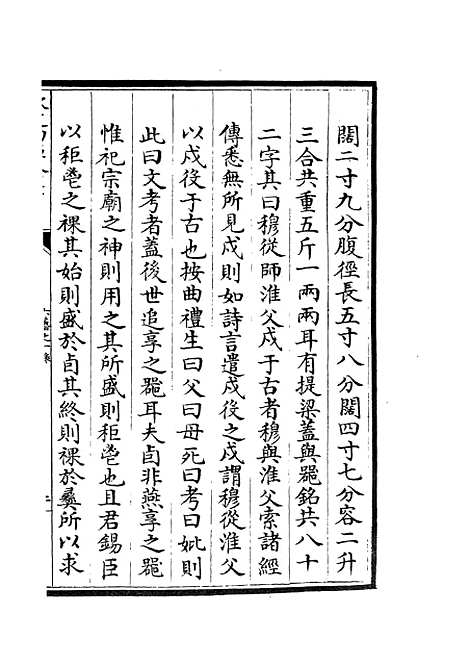 闊二寸九分腹徑長五寸八分闊四寸七分容二升
三合共重五斤一兩兩耳有提梁蓋與器銘共八十
二字其曰穆從師淮父戍于古者穆與淮父索諸經
傳悉無所見戍則如詩言遣戍役之戍謂穆從淮父
以戍役于古也按曲禮生曰父曰母死曰考曰妣則
此曰文考者蓋後世追享之器耳夫卣非燕享之器
惟祀宗廟之神則用之其所盛則秬鬯也且君錫臣
以秬鬯之祼其始則盛於卣其終則祼於彝所以求